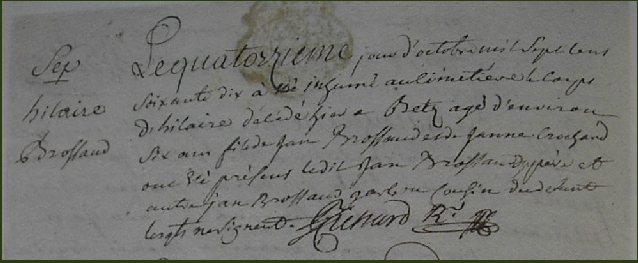 Sep
hilaire
Brossaud
Le quatorzieme jour d'octobre mil Sept cens
Soixante dix a été inhumé au Cimetiere le Corps
d'hilaire décédé hier a Betz agé d'environ
Six ans fils de Jan Brossaud et de Janne Crochard
ont été présens ledit Jan Brossaud père et
autre Jan Brossaud Cousin du defunt
lesqls ne signent.